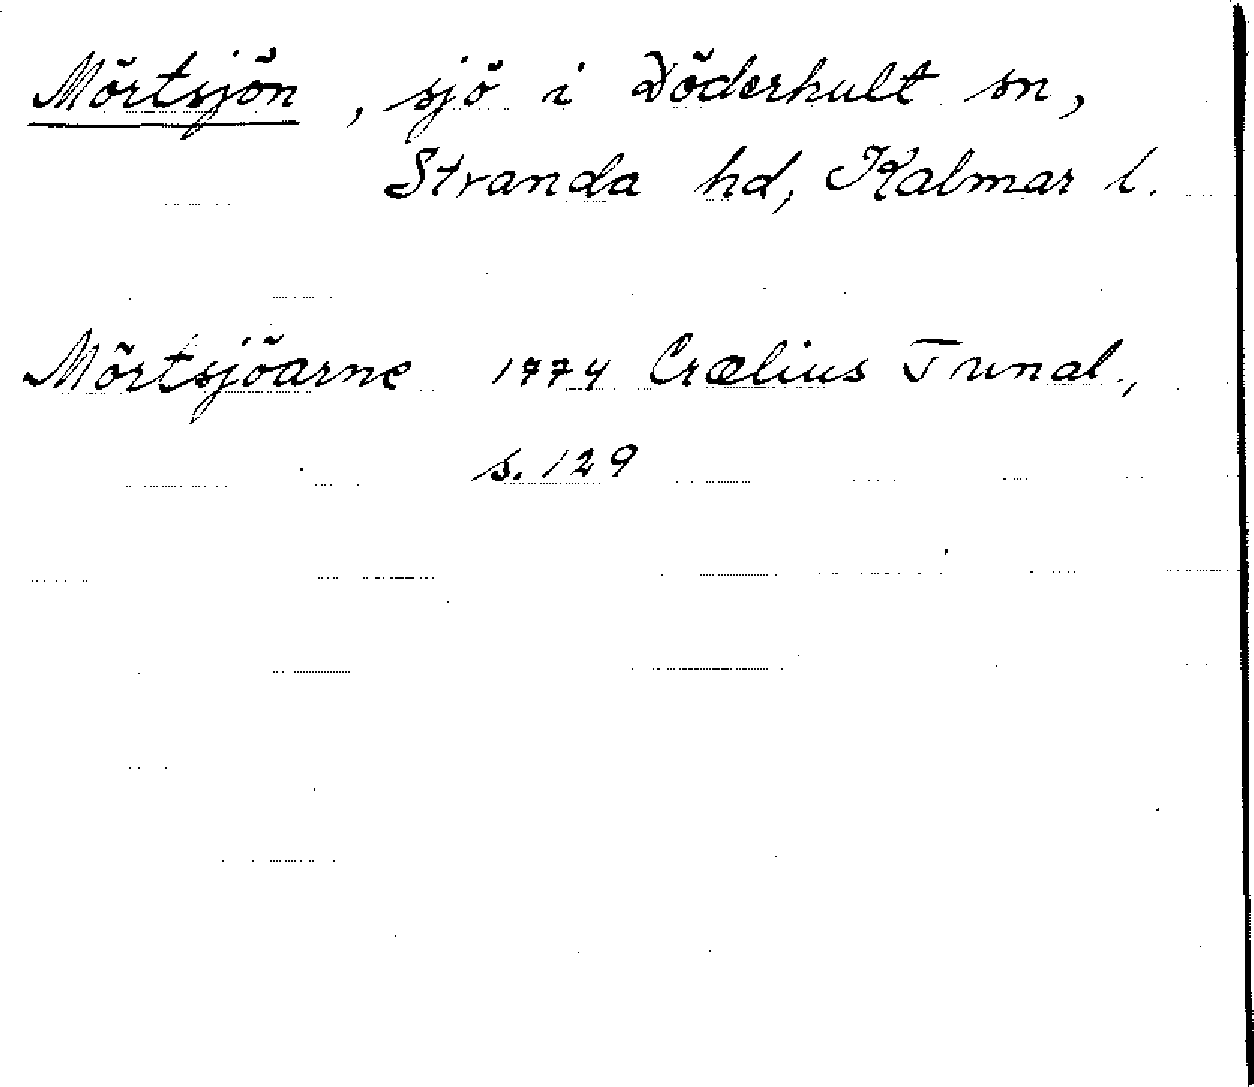 Mörtsjön, sjö i Döderhult sn,
Stranda hd, Kalmar l.
Mörtsjöarne 1774 Crælius Tunal.,
s. 129